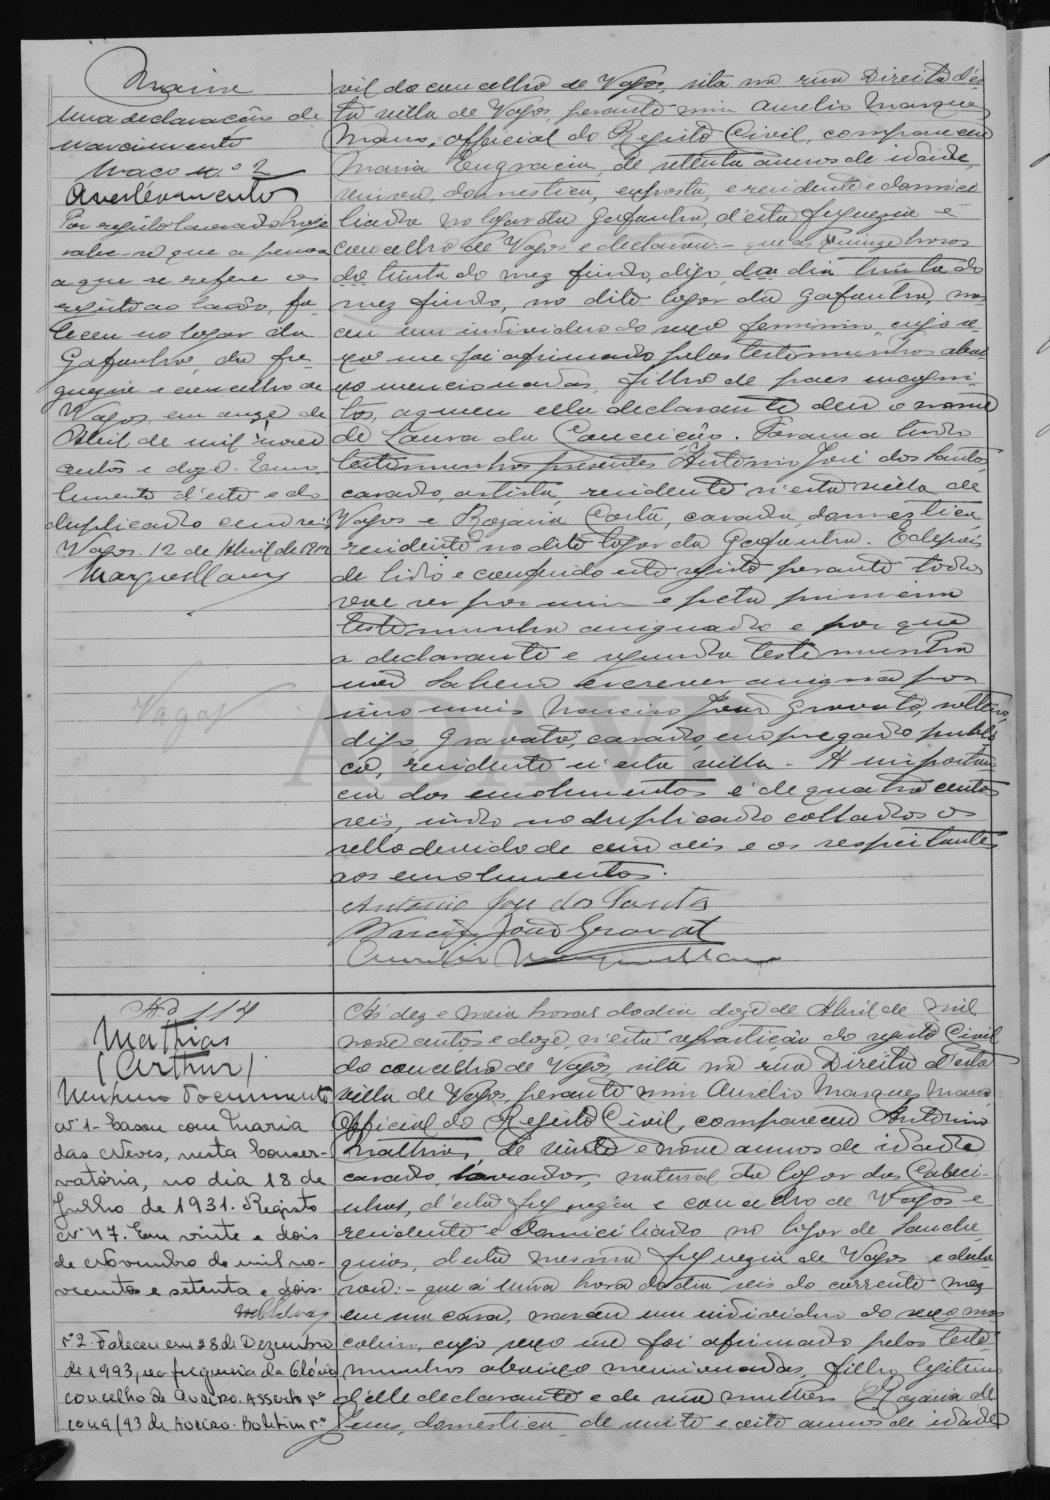 Uma declaração de
nascimento
Maço n.º 2
Averbamento
Por registo lavrado hoje
sabe-se que a pessoa
a que se refere o
registo ao lado, fa-
leceu no logar da
Gafanha, da fre-
guezia e concelho de
Vagos em onze de
Abril de mil nove
centos e doze. Emo-
lumento d'este e do
duplicado cem reis.
Vagos. 12 de Abril de 1912
Vagos
vil do concelho de Vagos, sita na rua Direita d'es-
ta villa de Vagos, perante mim Aurelio Marques
Mano, official do Registo Civil, compareceu
Maria Engracia, de setenta annos de idade,
viuva, domestica, exposta, e residente e domici-
liada no logar da Gafanha, d'esta freguezia e
concelho de Vagos e declarou: - que ás quinze horas
do trinta do mez findo, digo, do dia trinta do
mez findo, no dito logar da Gafanha, nas-
ceu um individuo do sexo feminino, cujo se-
xo me foi afirmado pelas testemunhas abai-
xo mencionadas, filho de paes incogni-
tos, a quem ella declarante deu o nome
de Laura da Conceição. Foram a tudo
testemunhas presentes Antonio José dos Santos,
casado, artista, residente n'esta villa de
Vagos e Rozaria Costa, casada, domestica,
residente no dito logar da Gafanha. E depois
de lido e conferido este registo perante todos
vae ser por mim e pela primeira
testemunha assignado e por que
a declarante e segunda testemunha
não sabem escrever assigna por
uma mais Narciso João Gravato, solteiro,
digo, Gravato, casado, empregado publi-
co, residente n'esta villa. A importan-
cia dos emolumentos é de quatrocentos
reis, indo no duplicado collados o
sello devido de cem reis e os respeitantes
aos emolumentos.
Antonio José dos Santos
Narciso João Gravato
N.º 114
Mathias
(Arthur)
Nenhum documento
Nº 1 - Casou com Maria
das Neves, nesta Conser-
vatória, no dia 18 de
Julho de 1931. Registo
nº 47. Em vinte e dois
de Novembro de mil no-
vecentos e setenta e dois.
nº 2 - Faleceu em 28 de Dezembro
de 1993, na freguesia da Glória
concelho de Aveiro. Assento nº
de Aveiro. Boletim nº
Ás dez e meia horas do dia doze de Abril de mil
nove centos e doze, n'esta repartição do registo Civil
do concelho de Vagos, sita na rua Direita d'esta
villa de Vagos, perante mim Aurelio Marques Mano
Official do Registo Civil, compareceu Antonio
Mathias, de vinte e nove annos de idade
casado, lavrador, natural do logar das Cabeci-
nhas, d'esta freguezia e concelho de Vagos e
residente e domiciliado no logar de Sanche-
quias, d'esta mesma freguezia de Vagos e decla-
rou: - que á uma hora do dia seis do corrente mez
em sua casa, nasceu um individuo do sexo mas-
culino, cujo sexo me foi afirmado pelas teste-
munhas abaixo mencionadas, filho legitimo
d'elle declarante e de sua mulher Rozaria de
Jesus, domestica, de vinte e oito annos de idade
ADAVR